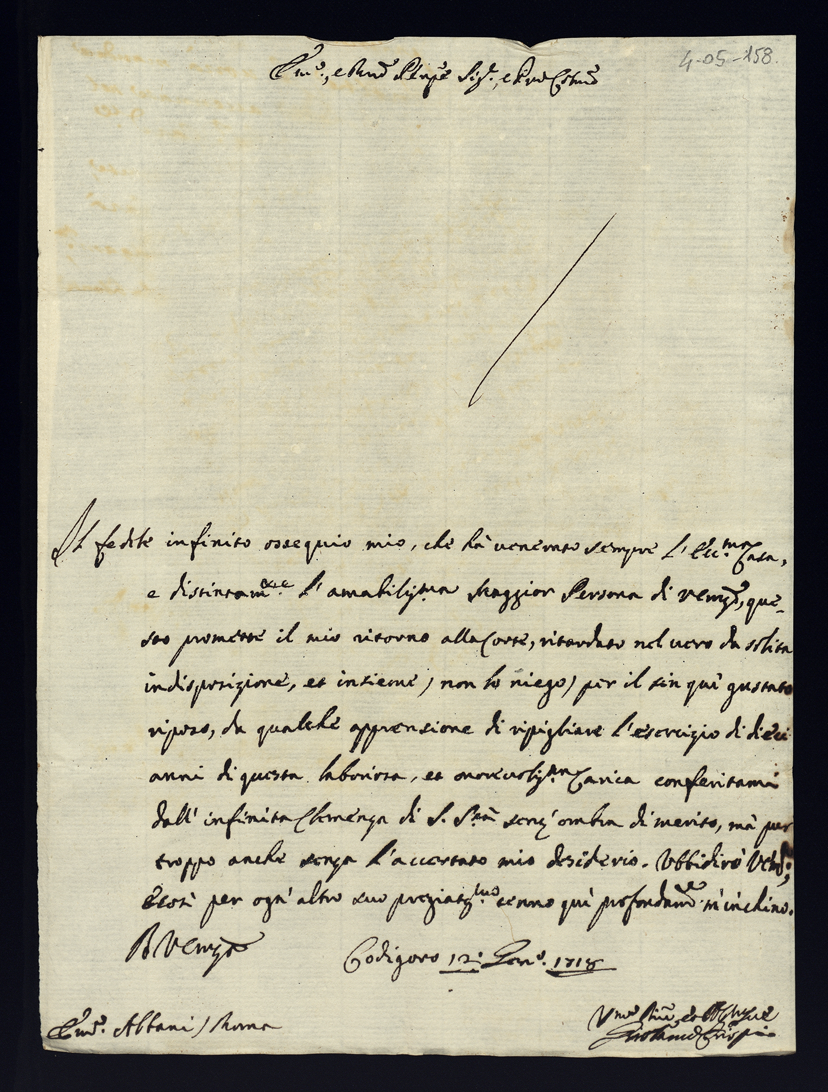 4-05-158.
Em.º, e Rmo Prnpe Sigr., e Pne Colmo
Il fedele infinito ossequio mio, che hà venerato sempre l'Ecc.ma Casa,
e distintamte l'amabilissma Maggior Persona di Vemza, que-
sto promette il mio ritorno alla Corte, ritardato nel vero da solita
indisposizione, et insieme) non lo niego) per il sin quì gustato
riposo, da qualche apprensione di ripigliare l'esercizio di dieci
anni di questa laboriosa, et onorevolissma Carica conferitami
dall'infinita Clemenza di S. Stà senz'ombra di merito, mà pur
troppo anche senza l'accertato mio desiderio. Ubbidirò Vemza,
e così per ogn'altro suo pregiatissmo cenno quì profondamte m'inchino.
Di Vemza
Codigoro 12. Genº. 1718
Emo. Albani) Roma
Vmo